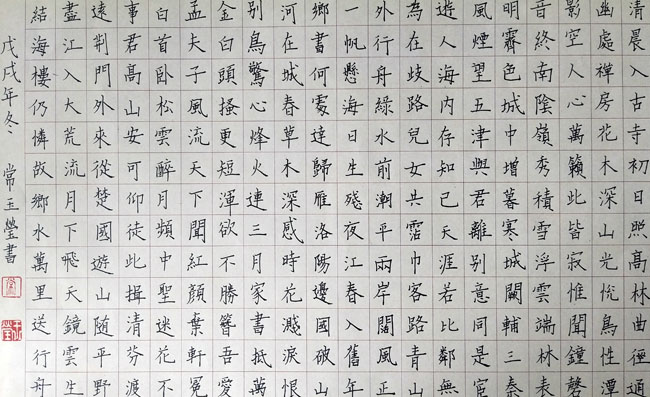 清晨入古寺初日照高林曲徑通
幽處禪房花木深山光悅鳥性潭
影空人心萬籟此皆寂惟聞鐘磬
音終南陰嶺秀積雪浮雲端林表
明霽色城中增暮寒城闕輔三秦
風煙望五津與君離別意同是宦
遊人海內存知己天涯若比鄰無
為在歧路兒女共霑巾客路青山
外行舟綠水前潮平兩岸闊風正
一帆懸海日生殘夜江春入舊年
鄉書何處達歸雁洛陽邊國破山
河在城春草木深感時花濺淚恨
別鳥驚心烽火連三月家書抵萬
金白頭搔更短渾欲不勝簪吾愛
孟夫子風流天下聞紅顏棄軒冕
白首臥松雲醉月頻中聖迷花不
事君高山安可仰徒此揖清芬渡
遠荊門外來從楚國遊山随平野
盡江入大荒流月下飛天鏡雲生
結海樓仍憐故鄉水萬里送行舟
戊戌年冬 常玉瑩書